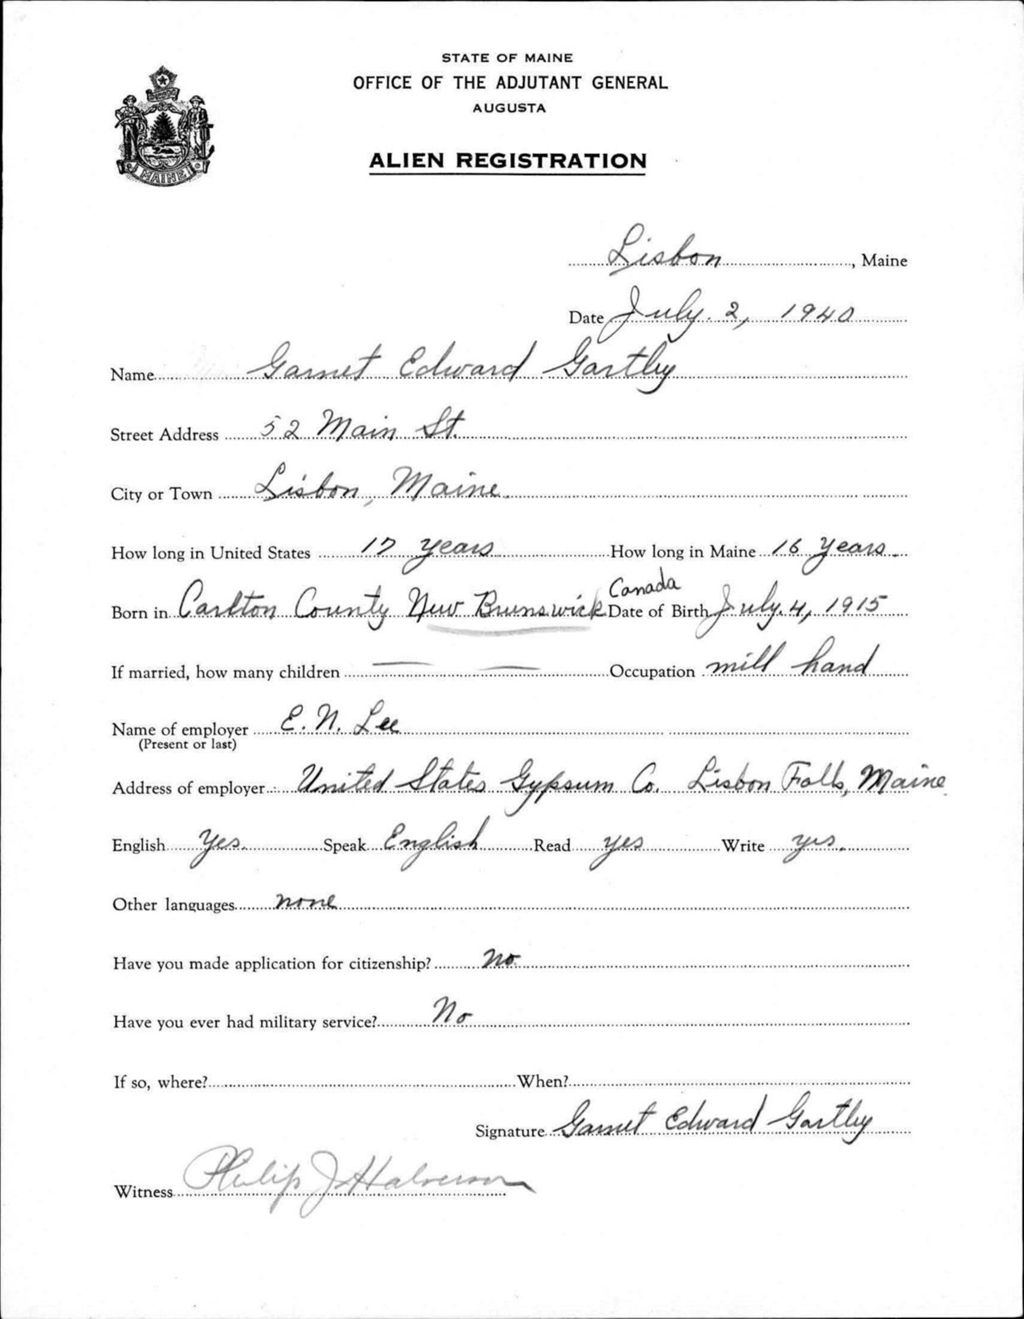 STATE OF MAINE
OFFICE OF THE ADJUTANT GENERAL
AUGUSTA
ALIEN REGISTRATION
MAINE
Lisbon, Maine
Date July 2, 1940
Name Garnet Edward Gartley
Street Address 52 Main St.
City or Town Lisbon, Maine
How long in United States 17 years How long in Maine 16 years
Born in Carlton County New Brunswick Canada Date of Birth July 4, 1915
If married, how many children — — Occupation mill hand
Name of employer E. N. Lee
(Present or last)
Address of employer United States Gypsum Co. Lisbon Falls, Maine
English Yes. Speak English Read yes Write yes.
Other languages none
Have you made application for citizenship? No
Have you ever had military service? No
If so, where? When?
Signature Garnet Edward Gartley
Witness Philip J Halverson